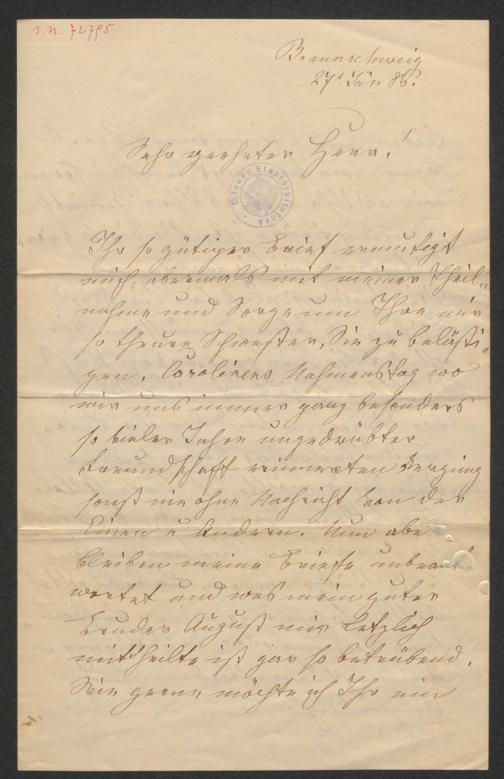 I. N. 72795
Braunschweig
27t Jän. 86.
Sehr geehrter Herr.
Wiener Stadtbibliothek
Ihr so gütiger Brief ermutigt
mich, abermals mit meiner Theil-
nahme und Sorge um Ihre mir
so theure Schwester, Sie zu belästi-
gen. Carolinens Nahmenstag wo
wir uns immer ganz besonders
so vieler Jahre ungetrübter
Freundschaft erinnerten verging
sonst nie ohne Nachricht von der
Einen u Andern. Nun aber
bleiben meine Briefe unbeant-
wortet und was mein guter
Bruder August mir letzlich
mittheilte ist gar so betrübend.
Wie gerne möchte ich Ihr ein